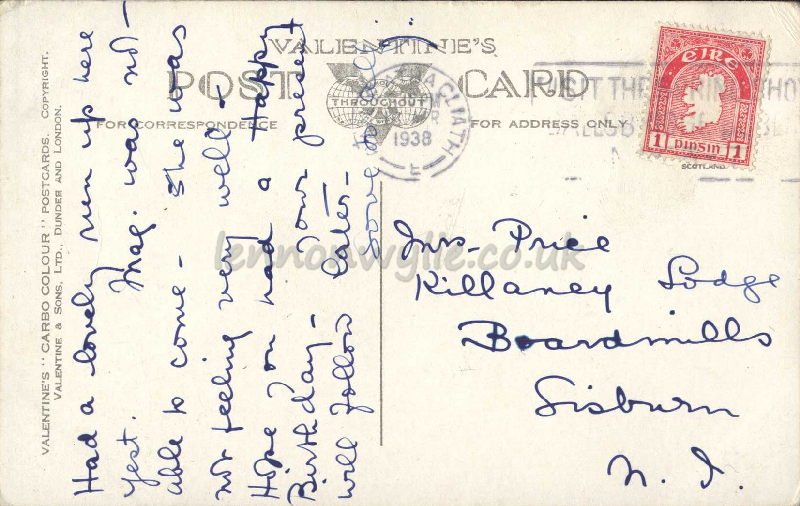 VALENTINE'S "CARBO COLOUR" POSTCARDS. COPYRIGHT.
VALENTINE & SONS, LTD., DUNDEE AND LONDON.
VALENTINE'S
POST CARD
THROUGHOUT
FOR CORRESPONDENCE
FOR ADDRESS ONLY
1938
ÉIRE
1 PINSIN 1
SCOTLAND
Had a lovely run up here
yest. Mag. was not
able to come - She was
not feeling very well -
Hope you had a Happy
Birthday - Your present
will follow later -
Love to all
Mrs - Price
Killaney Lodge
Boardmills
Lisburn
N. I.
lennonwylie.co.uk